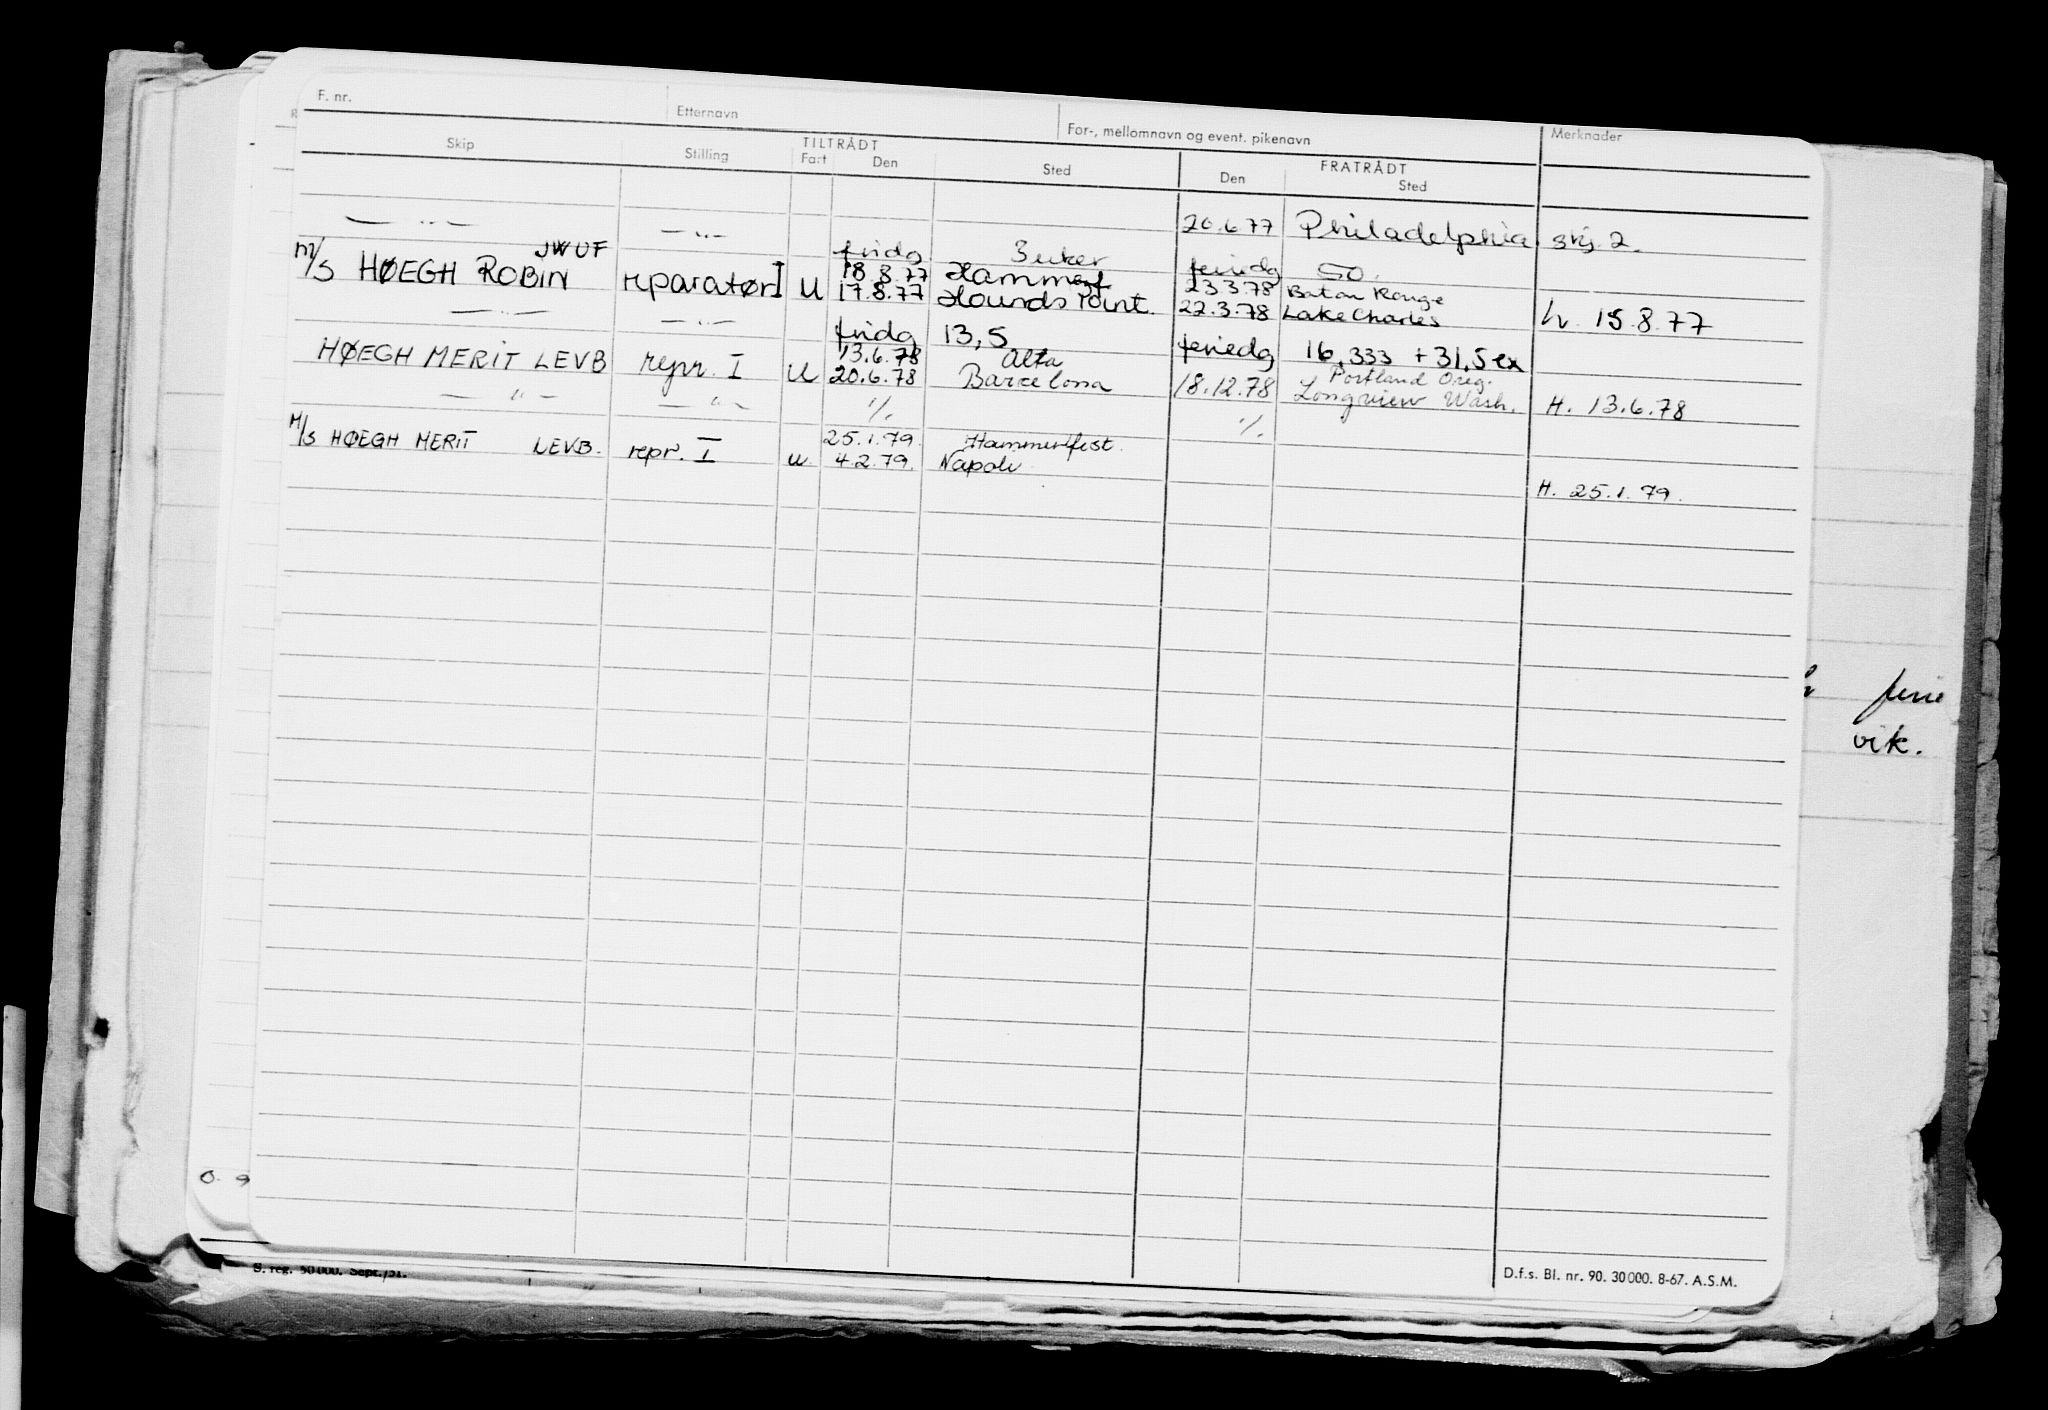 F. nr. Etternavn For-, mellomnavn og event. pikenavn Merknader
Skip Stilling TILTRÅDT Fart Den Sted FRATRÅDT Den Sted
— " — — " — 20.6.77 Philadelphia skj. 2.
JWUF fridg 3 uker feriedg 50.
M/S HØEGH ROBIN reparatør I U 18.8.77 Hammerf 23.3.78 Baton Rouge
17.8.77 Hounds Point. 22.3.78 Lake Charles h. 15.8.77
— " — — " — fridg 13,5 feriedg 16,333 + 31,5 ex
HØEGH MERIT LEVB repr. I U 13.6.78 Alta Portland Oreg.
20.6.78 Barcelona 18.12.78 Longview Wash. H. 13.6.78
— " — — " — ./. ./.
M/S HØEGH MERIT LEVB. repr. I U 25.1.79. Hammerfest.
4.2.79. Napoli
H. 25.1.79.
ferie
vik.
0. 9
S. reg. 50000. Sept./51.
D.f.s. Bl. nr. 90. 30000. 8-67. A.S.M.